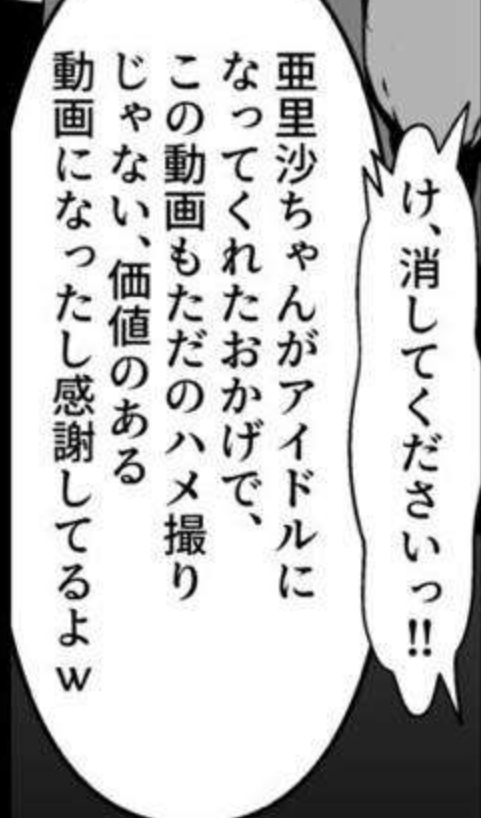 け、消してくださいっ!!
亜里沙ちゃんがアイドルに
なってくれたおかげで、
この動画もただのハメ撮り
じゃない、価値のある
動画になったし感謝してるよw